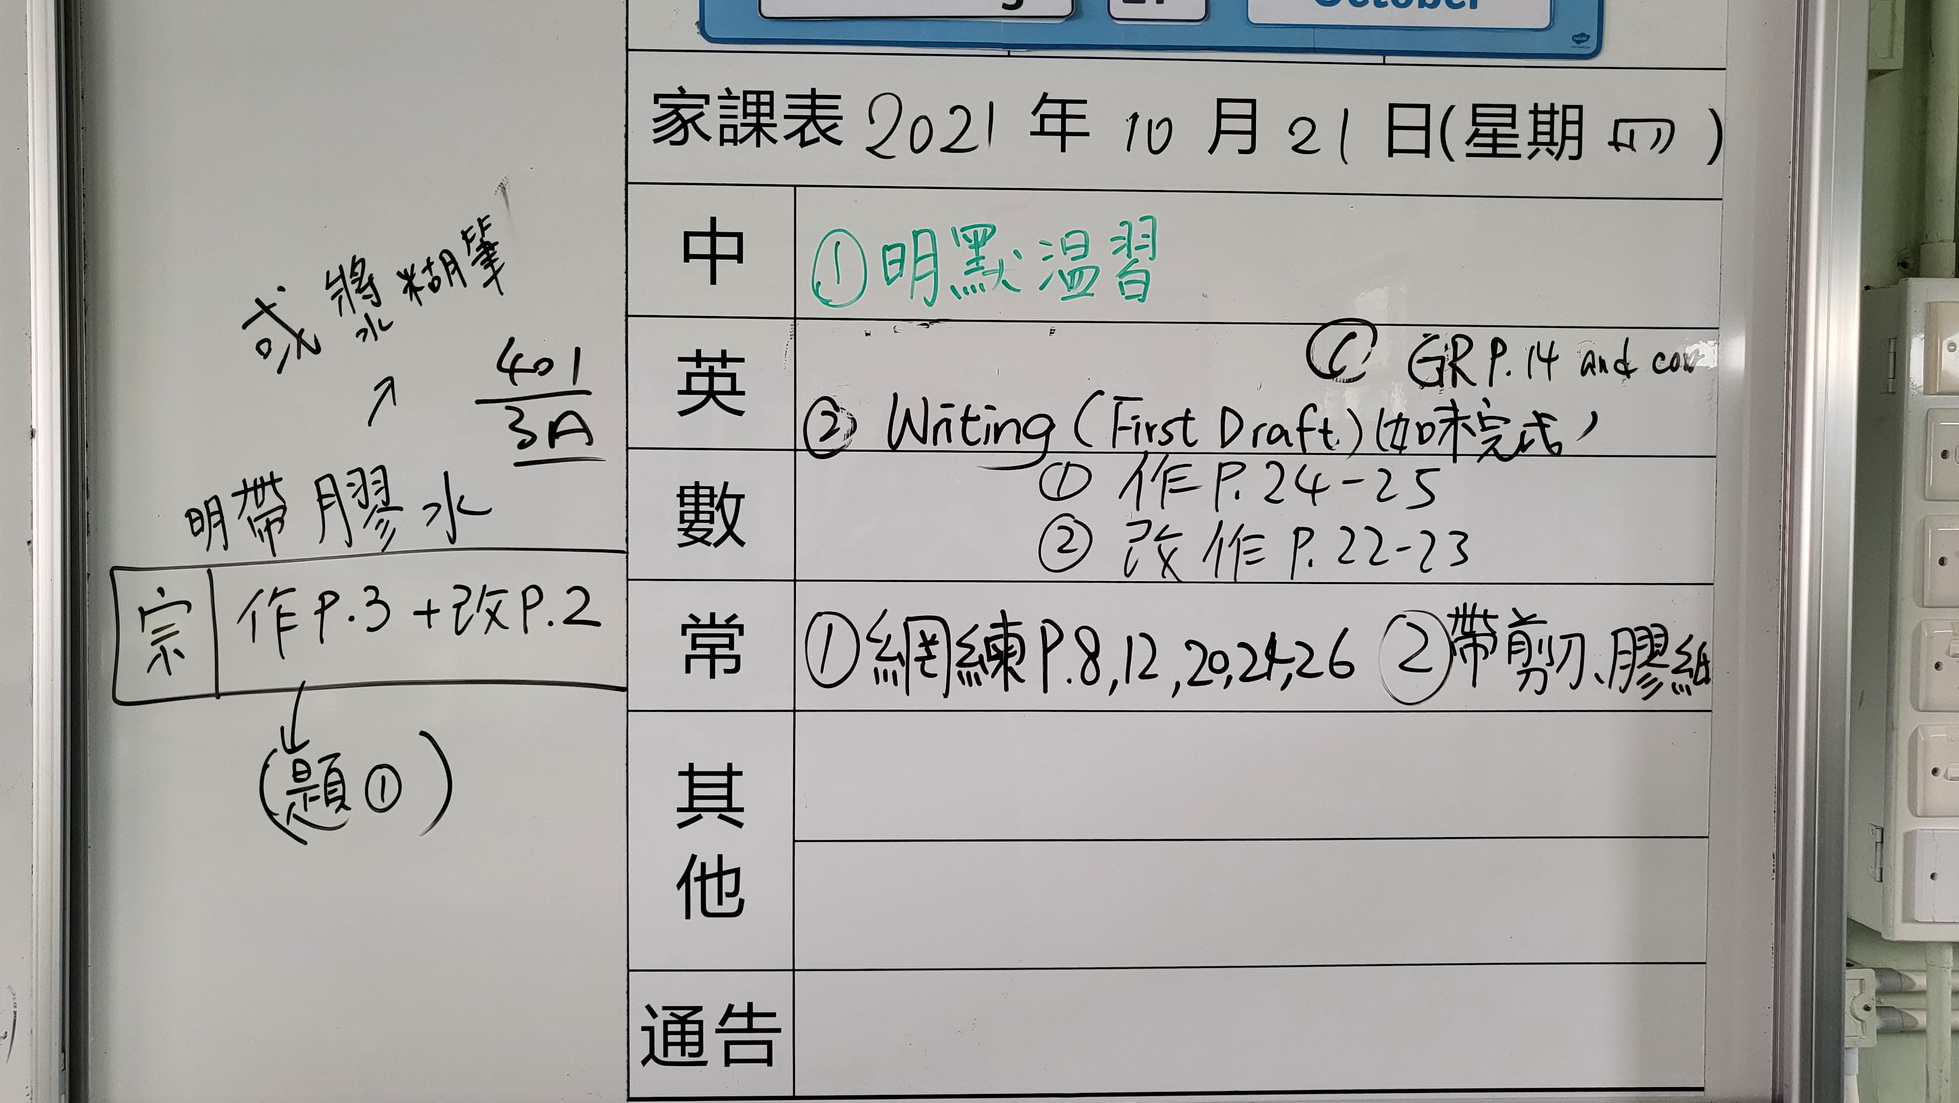 October
家課表 2021 年 10 月 21 日(星期 四)
中
①明默溫習
英
GR P.14 and
② Writing (First Draft) (如未完成)
數
① 作 P.24-25
② 改作 P.22-23
常
①網練 P.8,12,20,24,26 ②帶剪刀、膠紙
其他
通告
或 將 糊筆
水
401
3A
明帶膠水
宗 作 P.3 + 改 P.2
(題①)